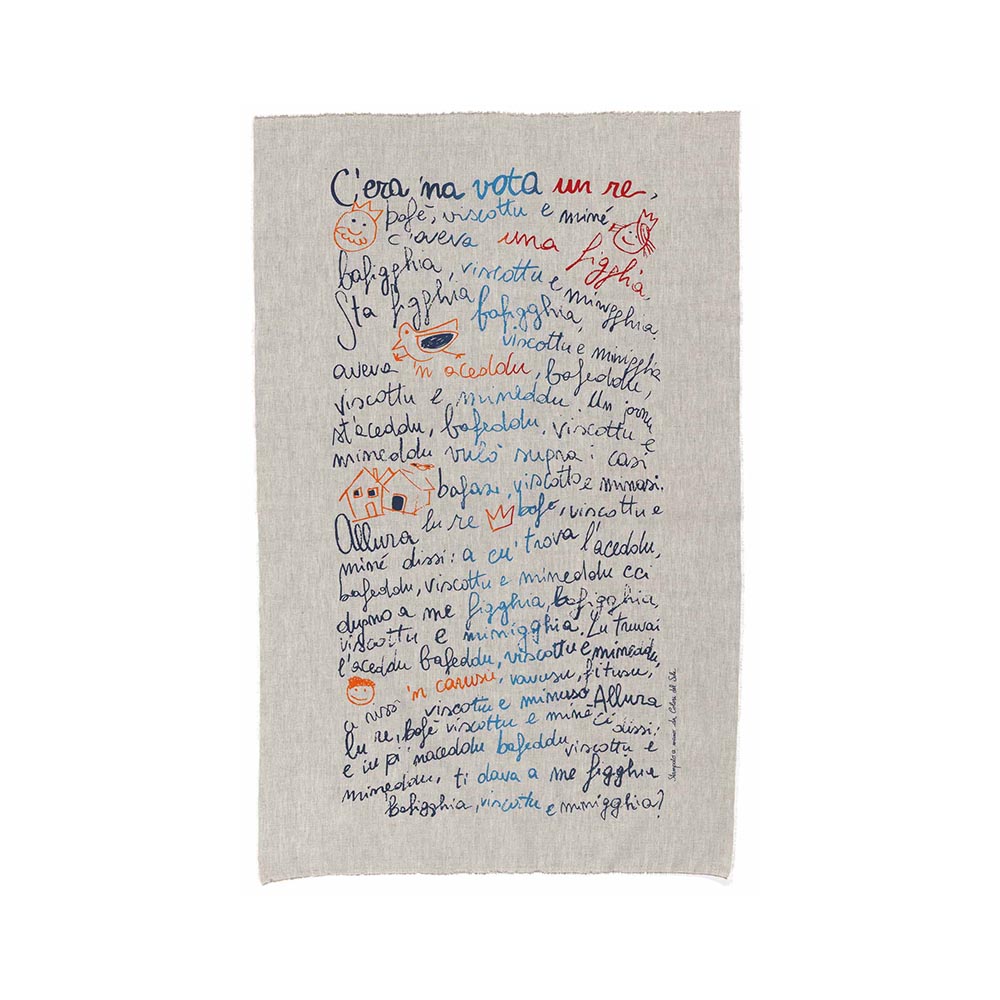 C'era 'na vota un re,
bafè, viscottu e minè
c'aveva una figghia,
bafigghia, viscottu e minigghia.
Sta figghia bafigghia,
viscottu e minigghia
aveva 'n aceddu, bafeddu,
viscottu e mineddu. Un jornu
st'aceddu, bafeddu, viscottu e
mineddu vulò supra i casi
bafasi, viscotto e minasi.
Allura lu re bafè, viscottu e
minè dissi: a cu' trova l'aceddu,
bafeddu, viscottu e mineddu cci
dugno a me figghia, bafigghia,
viscottu e minigghia. Lu truvai
l'aceddu bafeddu, viscottu e mineddu,
'n carusu, vavusu, fitusu,
viscottu e minuso. Allura
lu re, bafè viscottu e minè ci dissi:
e iu pi' naceddu bafeddu viscottu e
mineddu, ti dava a me figghia
bafigghia, viscottu e minigghia?
Stampato a mano da Colori del Sole